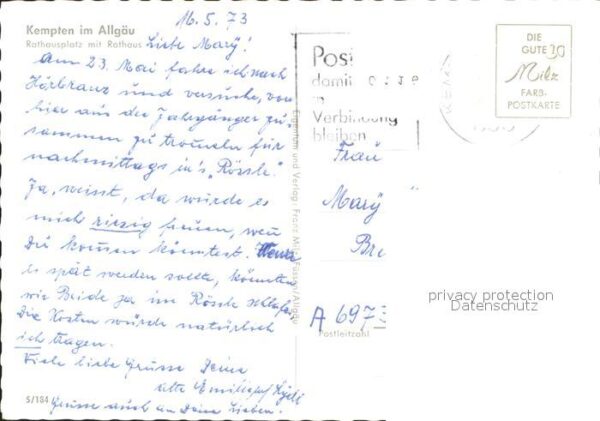 16.5.73
Kempten im Allgäu
Rathausplatz mit Rathaus
Liebe Mary!
Am 23. Mai fahre ich nach
Hörbranz und versuche, von
hier aus die Jahrgänger zu-
sammen zu trommeln für
nachmittags in's "Rössle".
Ja, weisst, da würde es
mich riesig freuen, wenn
Du kommen könntest. Wenn
es spät werden sollte, könnten
wir Beide ja im Rössle schlafen
Die Kosten würde natürlich
ich tragen.
Viele liebe Grüsse Deine
alte
Grüsse auch an Deine Lieben.
S/184
Eigentum und Verlag: Franz Milz Füssen/Allgäu
Post
damit
in
Verbindung
bleiben
DIE
GUTE 30
Milz
FARB-
POSTKARTE
Frau
Mary
Bre
A 697
Postleitzahl
privacy protection
Datenschutz